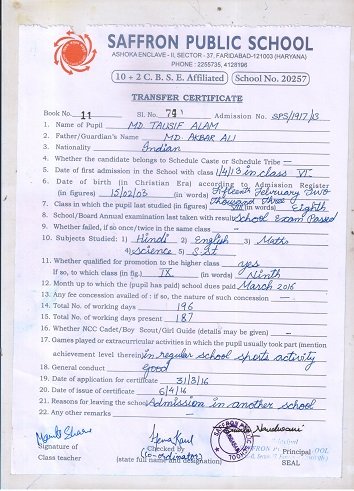 SAFFRON PUBLIC SCHOOL
ASHOKA ENCLAVE - II, SECTOR - 37, FARIDABAD-121003 (HARYANA)
PHONE : 2255735, 4128196
10 + 2 C. B. S. E. Affiliated School No. 20257
TRANSFER CERTIFICATE
Book No. 11 Sl. No. 791 Admission No. SPS/1917/13
1. Name of Pupil MD. TAUSIF ALAM
2. Father/Guardian's Name MD. AKBAR ALI
3. Nationality Indian
4. Whether the candidate belongs to Schedule Caste or Schedule Tribe –
5. Date of first admission in the School with class 1/4/13 in class VI
6. Date of birth (in Christian Era) according to Admission Register
(in figures) 15/02/03 (in words) Fifteenth February Two Thousand Three
7. Class in which the pupil last studied (in figures) (in words) Eighth
8. School/Board Annual examination last taken with result School Exam Passed
9. Whether failed, if so once/twice in the same class –
10. Subjects Studied: 1) Hindi 2) English 3) Maths
4) Science 5) S.St
11. Whether qualified for promotion to the higher class yes
If so, to which class (in fig.) IX (in words) Ninth
12. Month up to which the (pupil has paid) school dues paid March 2016
13. Any fee concession availed of : if so, the nature of such concession –
14. Total No. of working days 196
15. Total No. of working days present 187
16. Whether NCC Cadet/Boy Scout/Girl Guide (details may be given) –
17. Games played or extracurricular activities in which the pupil usually took part (mention
achievement level therein) in regular school sports activity
18. General conduct good
19. Date of application for certificate 31/3/16
20. Date of issue of certificate 6/4/16
21. Reasons for leaving the school Admission in another school
22. Any other remarks –
Signature of
Class teacher
Checked by
(Co-ordinator)
(state full name and designation)
Principal
SEAL